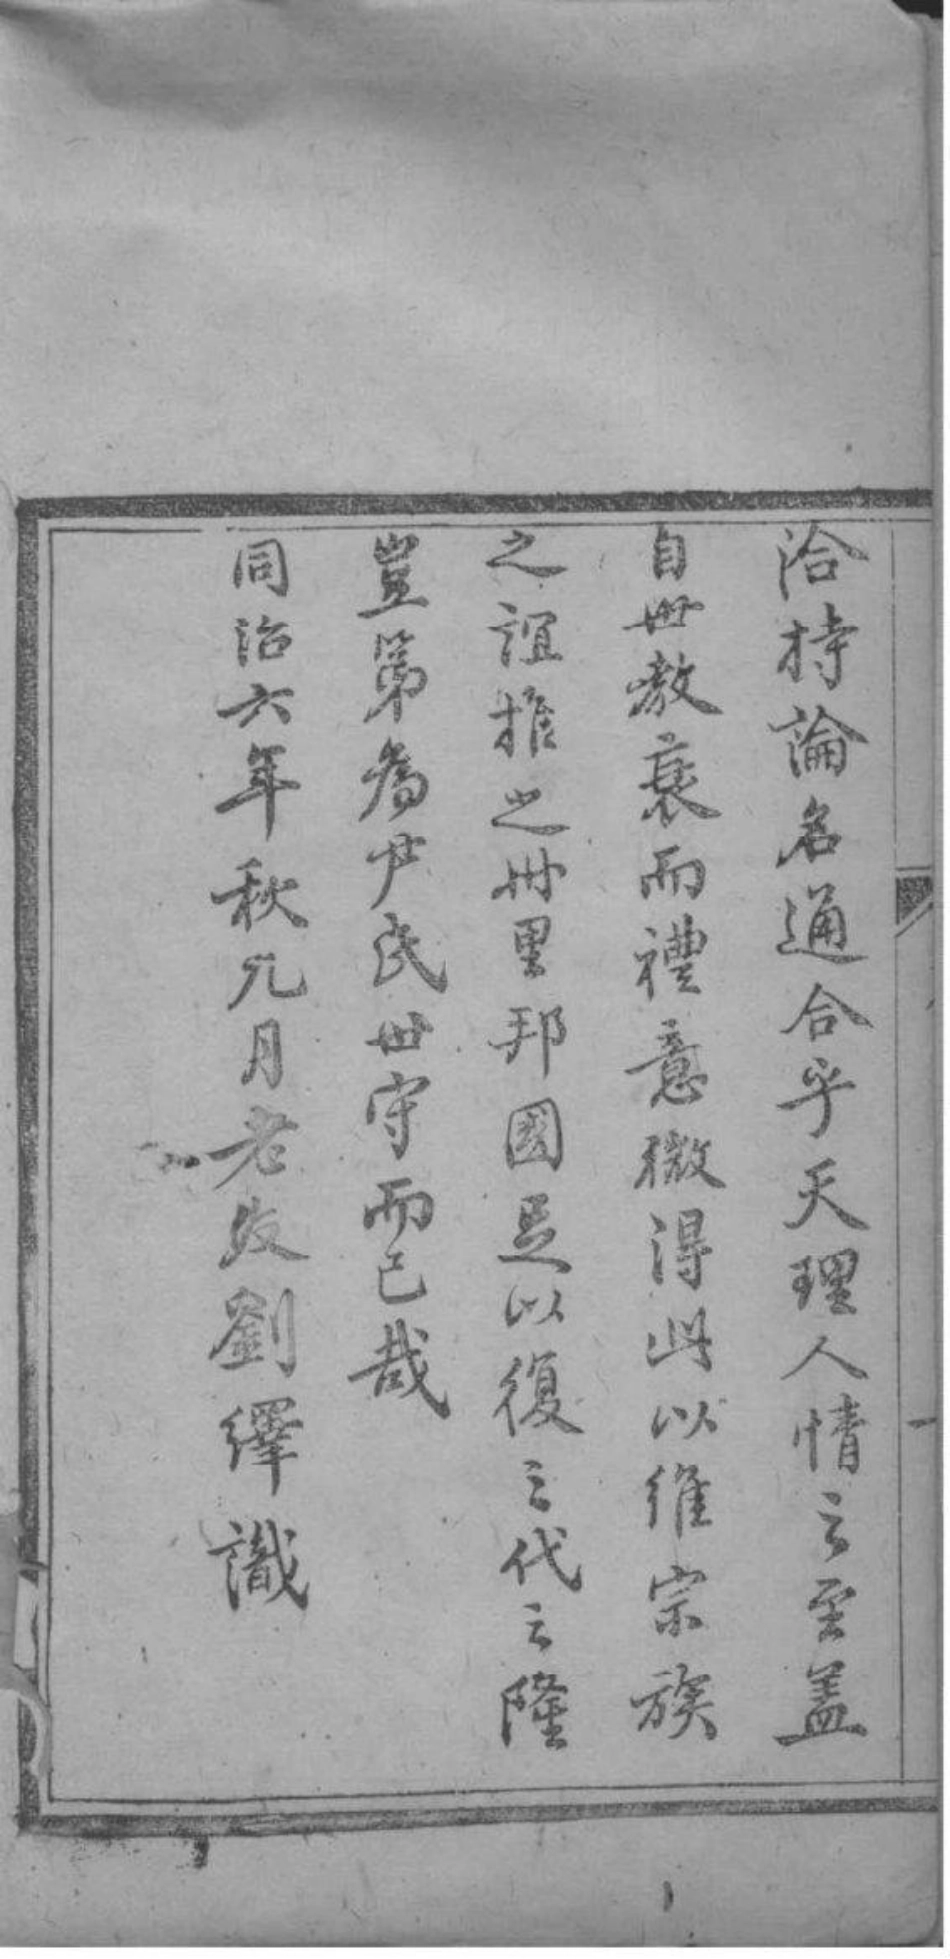 洽持論名通合乎天理人情之至蓋
自世教衰而禮意微得此以維宗族
之誼推之州里邦國足以復三代之隆
豈第為尹氏世守而已哉
同治六年秋九月老友劉繹識